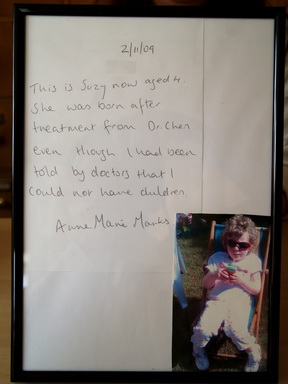 2/11/09
This is Suzy now aged 4.
She was born after
treatment from Dr. Chen
even though I had been
told by doctors that I
could not have children.
Anne Marie Marks